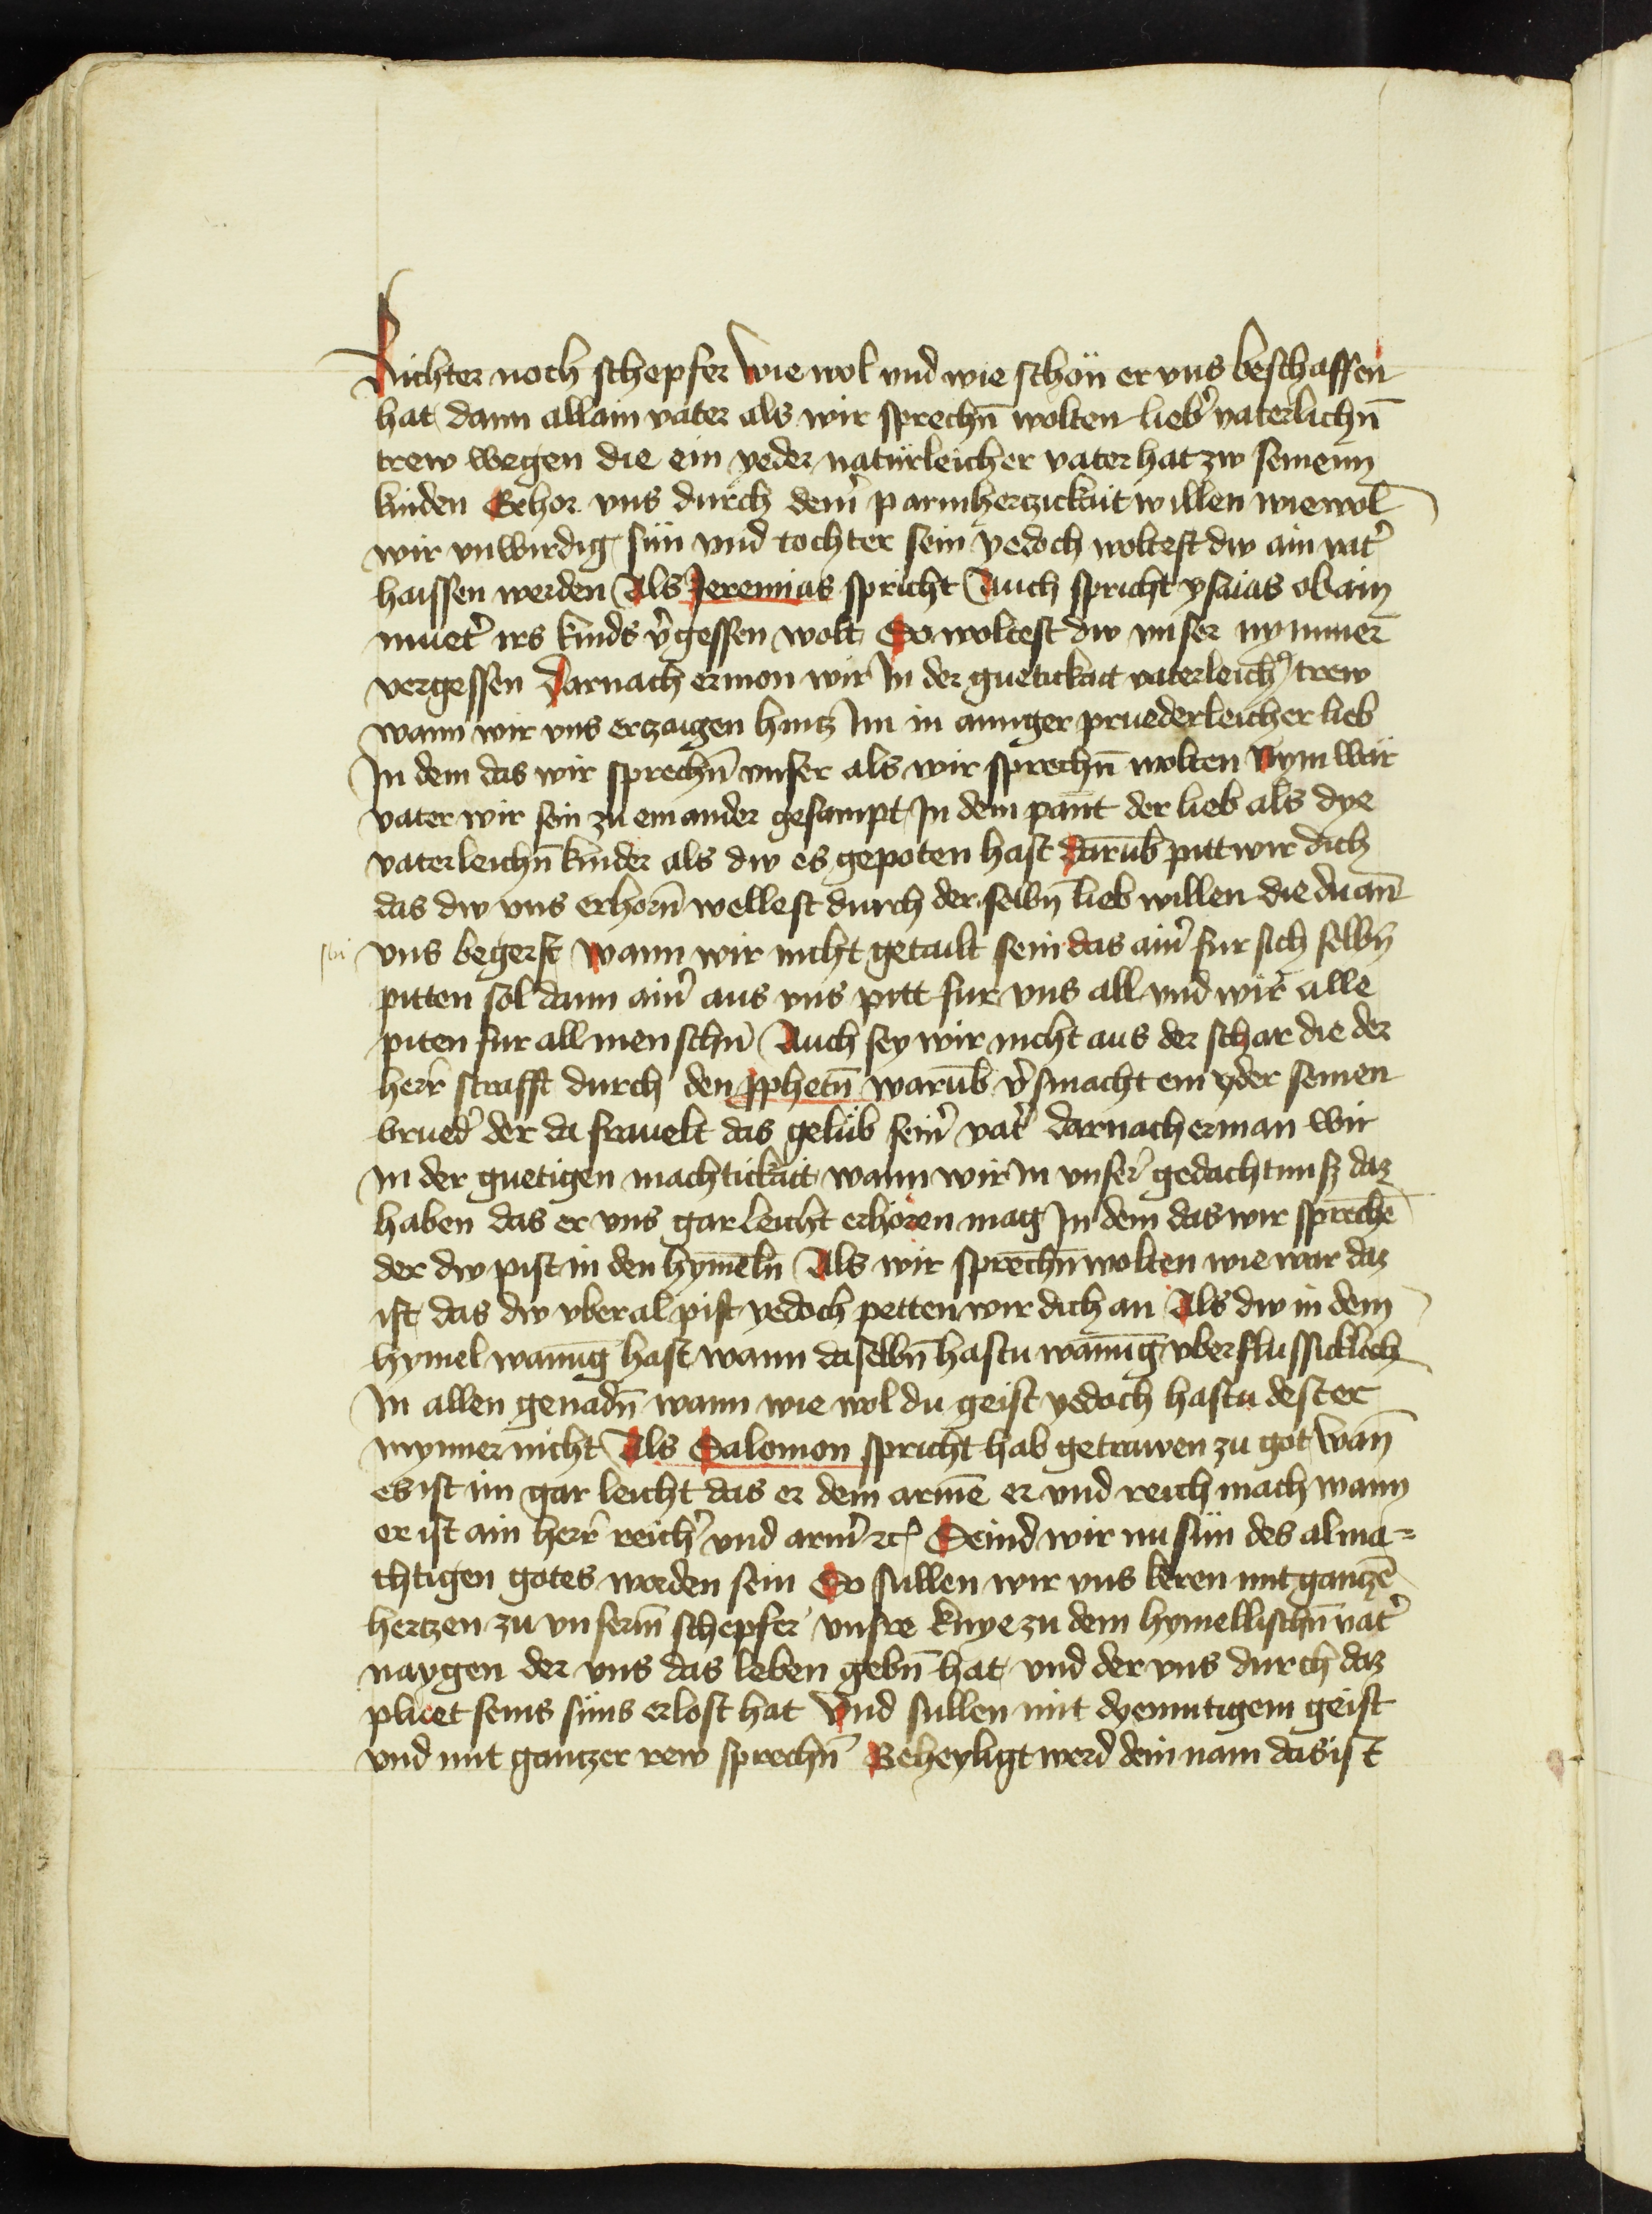 Richter noch schepfer wie wol vnd wie schön er vns beschaffen
hat dann allain vater als wir sprechn̄ wolten lieb͛ vaterlichn̄
trew wegen die ein yeder natürleicher vater hat zw seinem
kinden Erhor vns durch dein͛ parmhertzickait willen wiewol
wir vnwirdig sün vnd tochter sein yedoch woltest dw ain vat͛
haissen werden Als Jeremias spricht Auch spricht ysaias ob ain
muet͛ irs kinds v͛gessen wolt So woltest dw vnser nymmer
vergessen Darnach ermon wir In der guetickait vaterleich͛ trew
wann wir vns erzaigen hintz Im in ainiger pruederleicher lieb
In dem das wir sprechn̄ vnser als wir sprechn̄ wolten Nym war
vater wir sein zu einander gesampt In dem pant der lieb als dye
vaterleichn̄ kinder als dw es gepoten hast darūb pitt wir dich
das dw vns erhorn̄ wellest durch der selbn̄ lieb willen die du an
vns begerst wann wir nicht getailt sein das ain͛ fur sich selbn̄
pitten sol dann ain͛ aus vns pitt fur vns all vnd wir alle
piten fur all menschn̄ Auch sey wir nicht aus der schar die der
herr strafft durch den pphetn̄ warūb v͛smacht ein yder seinen
brued͛ der da frauelt das gelüb sein͛ vat͛ darnach erman wir
In der guetigen machtickait wann wir In vnser͛ gedachtnusz daz
haben das er vns gar leicht erhören mag In dem das wir sprechē
der dw pist in den hymēln Als wir sprechn̄ wolten wie war daz
ist das dw vberal pist yedoch petten wir dich an Als dw in dem
hymel wanūg hast wann daselbn̄ hastu wanūg vberflussicklich
In allen genadn̄ wann wie wol du geist yedoch hastu dester
mynner nicht Als Salomon spricht hab getrawen zu got wan̄
es ist im gar leicht das er dem armē er vnd reich mach wann
er ist ain herr reich͛ vnd arm͛ ꝛc Seind wir nu sün des alma=
chtigen gotes worden sein So sullen wir vns keren mit gantzē
hertzen zu vnserm̄ schepfer vnsre knye zu dem hymellischn̄ vat͛
naygen der vns das leben gebn̄ hat vnd der vns durch daz
pluet seins süns erlost hat Vnd sullen mit dyemutigem geist
vnd mit gantzer rew sprechn̄ Geheyligt werd dein nam das ist